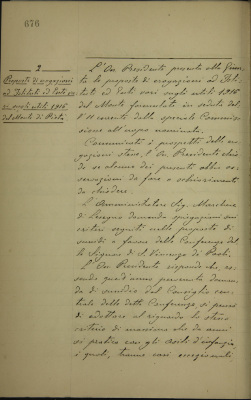 676
2
Proposte di erogazioni
ad Istituti ed Enti va-
ri sugli utili 1915
del Monte di Pietà.
L'On. Presidente presenta alla Giun-
ta le proposte di erogazioni ad Isti-
tuti ed Enti vari sugli utili 1915
del Monte formulate in seduta del
dì 11 corrente dalla speciale Commis-
sione all'uopo nominata.
Comunicato il prospetto delle ero-
gazioni stesse, l'On. Presidente chie-
de se alcuno dei presenti abbia os-
servazioni da fare o schiarimenti
da chiedere.
L'Amministratore Sig. Marchese
di domanda spiegazioni sui
criteri seguiti nella proposta di
sussidi a favore delle Conferenze del-
le Signore di S. Vincenzo de Paoli.
L'On. Presidente risponde che, es-
sendo quest'anno pervenuta doman-
da di sussidio dal Consiglio cen-
trale delle dette Conferenze, si pensò
di adottare al riguardo lo stesso
criterio di massima che da anni
si pratica con gli Asili d'infanzia
i quali, tranne casi eccezionali